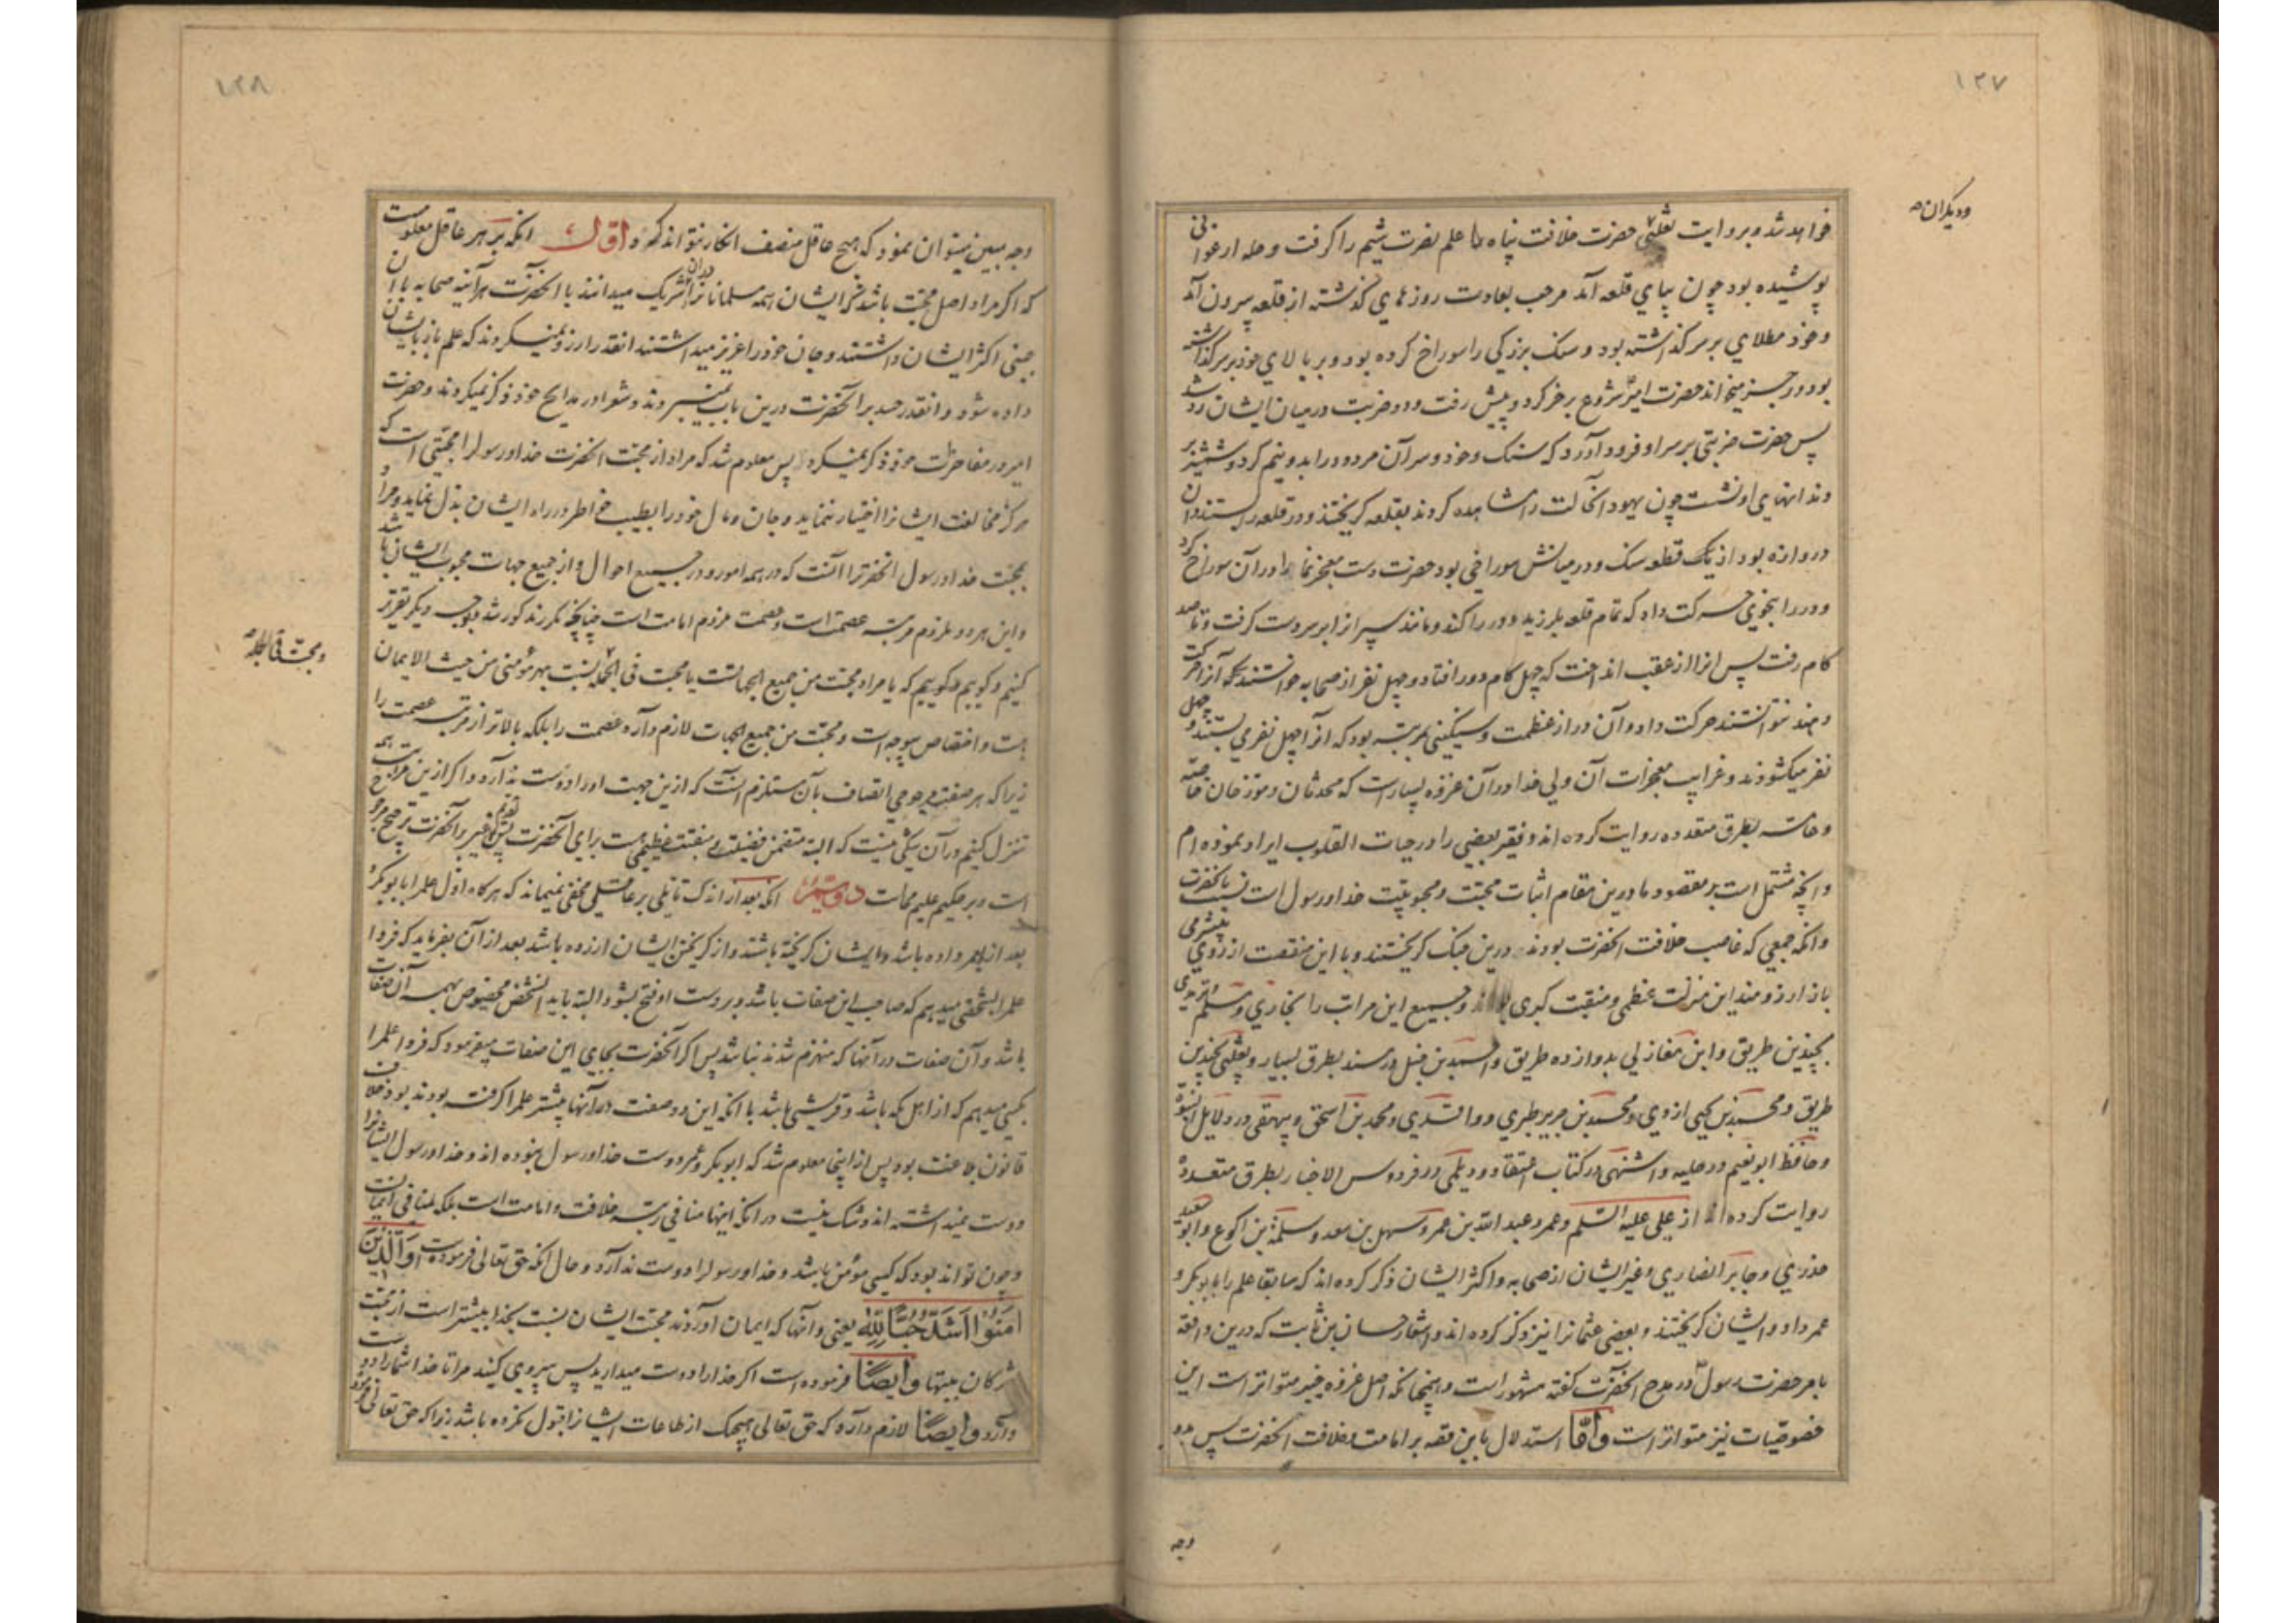 ۱۲۷
ودیگران
خواهد شد و بروایت ثعلبی حضرت خلافت پناه علم نصرت شیم را گرفت و حله ارغوانی
پوشیده بود چون بپای قلعه آمد مرحب بعادت روزهای گذشته از قلعه بیرون آمد
وخود مطلای بر سر گذاشته بود و سنک بزرکی را سوراخ کرده بود و بر بالای خود بر سر گذاشته
بود و رجز میخواند حضرت امیر شروع برجز کرد و پیش رفت و دو ضربت درمیان ایشان رد شد
پس حضرت ضربتی بر سر او فرود آورد که سنک وخود و سر آن مردود را بدو نیم کرد و شمشیر بر
دندانهای او نشست چون یهود انحالت را مشاهده کردند بقلعه کریختند و در قلعه را بستند و ان
دروازه بود از یک قطعه سنک و در میانش سوراخی بود حضرت دست معجزنما را در آن سوراخ کرد
و در را بنحوی حرکت داد که تمام قلعه بلرزید و در را کند و مانند سپر انرا بر سر دست کرفت و تا صد
کام رفت پس انرا از عقب انداخت که چهل کام دور افتاد و چهل نفر از صحابه خواستند که آنرا حرکت
دهند نتوانستند حرکت داد و آن در از عظمت وسنکینی بمرتبه بود که انرا چهل نفر می بستند و چهل
نفر میکشودند و غرایب معجزات آن ولی خدا در آن غزوه بسیار است که محدثان و مورخان خاصه
و عامه بطرق متعدده روایت کرده اند و فقیر بعضی را در حیات القلوب ایراد نموده ام
و انچه مشتمل است بر مقصود ما درین مقام اثبات محبت و محبوبیت خدا و رسول است نسبت بانحضرت
وانکه جمعی که غاصب خلافت انحضرت بودند درین جنک کریختند و با این منقصت از روی بیشرمی
باز ارزومند این منزلت عظمی و منقبت کبری و جمیع این مراتب را بخاری ومسلم و ترمذی
بچندین طریق و ابن مغازلی بدوازده طریق و احمد بن حنبل در مسند بطرق بسیار و ثعلبی بچندین
طریق و محمد بن یحیی ازدی و محمد بن جریر طبری و واقدی ومحمد بن اسحق و بیهقی در دلایل النبوة
و حافظ ابو نعیم در حلیه و اشنهی در کتاب اعتقاد و دیلمی در فردوس الاخبار بطرق متعدده
روایت کرده اند از علی علیه السلم وعمر و عبد الله بن عمر و سهل بن سعد و سلمة بن اکوع و ابو سعید
خدری و جابر انصاری و غیر ایشان از صحابه و اکثر ایشان ذکر کرده اند که سابقا علم را بابو بکر و
عمر داد و ایشان کریختند و بعضی عثمانرا نیز ذکر کرده اند و اشعار حسان بن ثابت که درین واقعه
بامر حضرت رسول در مدح انحضرت کفته مشهور است و چنانکه اصل غزوه خیبر متواتر است این
خصوصیات نیز متواتر است واما استدلال باین قصه بر امامت و خلافت انحضرت پس بدو
وجه
۱۲۸
وجه مبین میتوان نمود که هیچ عاقل منصف انکار نتواند کرد اول انکه بر هر عاقل معلومست
که اکر مراد اصل محبت باشد که ایشان همه مسلمانانرا دران شریک میدانند با انحضرت هرآینه صحابه با ان
جبنی اکثر ایشان داشتند و جان خود را عزیز میداشتند انقدر ارزو نمیکردند که علم باز بایشان
داده شود و انقدر حسد بر انحضرت درین باب نمیبردند و شعرا در مدایح خود ذکر نمیکردند و حضرت
امیر در مفاخرات خود ذکر نمیکرد پس معلوم شد که مراد از محبت انحضرت خدا و رسول را محبتی است که
هرکز مخالفت ایشانرا اختیار ننماید و جان و مال خود را بطیب خاطر در راه ایشان بذل نماید و مراد
بمحبت خدا و رسول انحضرترا انست که در همه امور و در جمیع احوال و از جمیع جهات محبوب ایشان باشد
و این هر دو ملزوم مرتبه عصمت است و عصمت ملزوم امامت است چنانچه مکرر مذکور شد و بوجه دیکر تقریر
کنیم و کوییم که یا مراد محبت من جمیع الجهاتست یا محبت فی الجمله نسبت بهر مؤمنی من حیث الایمان
ومحبت فی الجمله
هست و اختصاص بیوجه است و محبت من جمیع الجهات لازم دارد عصمت را بلکه بالاتر از مرتبه عصمت را
زیرا که هر صفت مرجوحی اتصاف بآن مستلزم انست که ازین جهت او را دوست ندارد و اکر ازین مراتب همه
تنزل کنیم در آن شکی نیست که البته متضمن فضیلت و منقبت عظیمی هست برای انحضرت پس تقدیم غیر بر انحضرت ترجیح مرجوح
است و بر حکیم علیم محالست دوم انکه بعد از اندک تاملی بر عاقلی مخفی نمیماند که هرکاه اول علم را بابو بکر
بعد از ان بعمر داده باشد و ایشان کریخته باشند و از کریختن ایشان ازرده باشد بعد از آن بفرماید که فردا
علم را بشخصی میدهم که صاحب این صفات باشد و بر دست او فتح بشود البته باید انشخص مخصوص بهمه آن صفات
باشد و آن صفات در آنها که منهزم شدند نباشد پس اکر انحضرت بجای این صفات میفرمود که فردا علم را
بکسی میدهم که از اهل مکه باشد و قریشی باشد با انکه این دو صفت در آنها که پیشتر علم را کرفته بودند بود خلاف
قانون بلاغت بود پس از اینجا معلوم شد که ابوبکر و عمر دوست خدا و رسول نبوده اند و خدا و رسول ایشانرا
دوست نمیداشته اند و شک نیست در انکه اینها منافی رتبه خلافت و امامت است بلکه منافی ایمانست
و چون تواند بود که کسی مؤمن باشد و خدا و رسول را دوست ندارد و حال انکه حق تعالی فرموده است والذین
آمنوا اشد حبا لله یعنی و آنها که ایمان آورده اند محبت ایشان نسبت بخدا بیشتر است از محبت
مشرکان ببتها وایضا فرموده است اکر خدا را دوست میدارید پس پیروی کنید مرا تا خدا شما را دوست
دارد وایضا لازم دارد که حق تعالی هیچیک از طاعات ایشانرا قبول نکرده باشد زیرا که حق تعالی